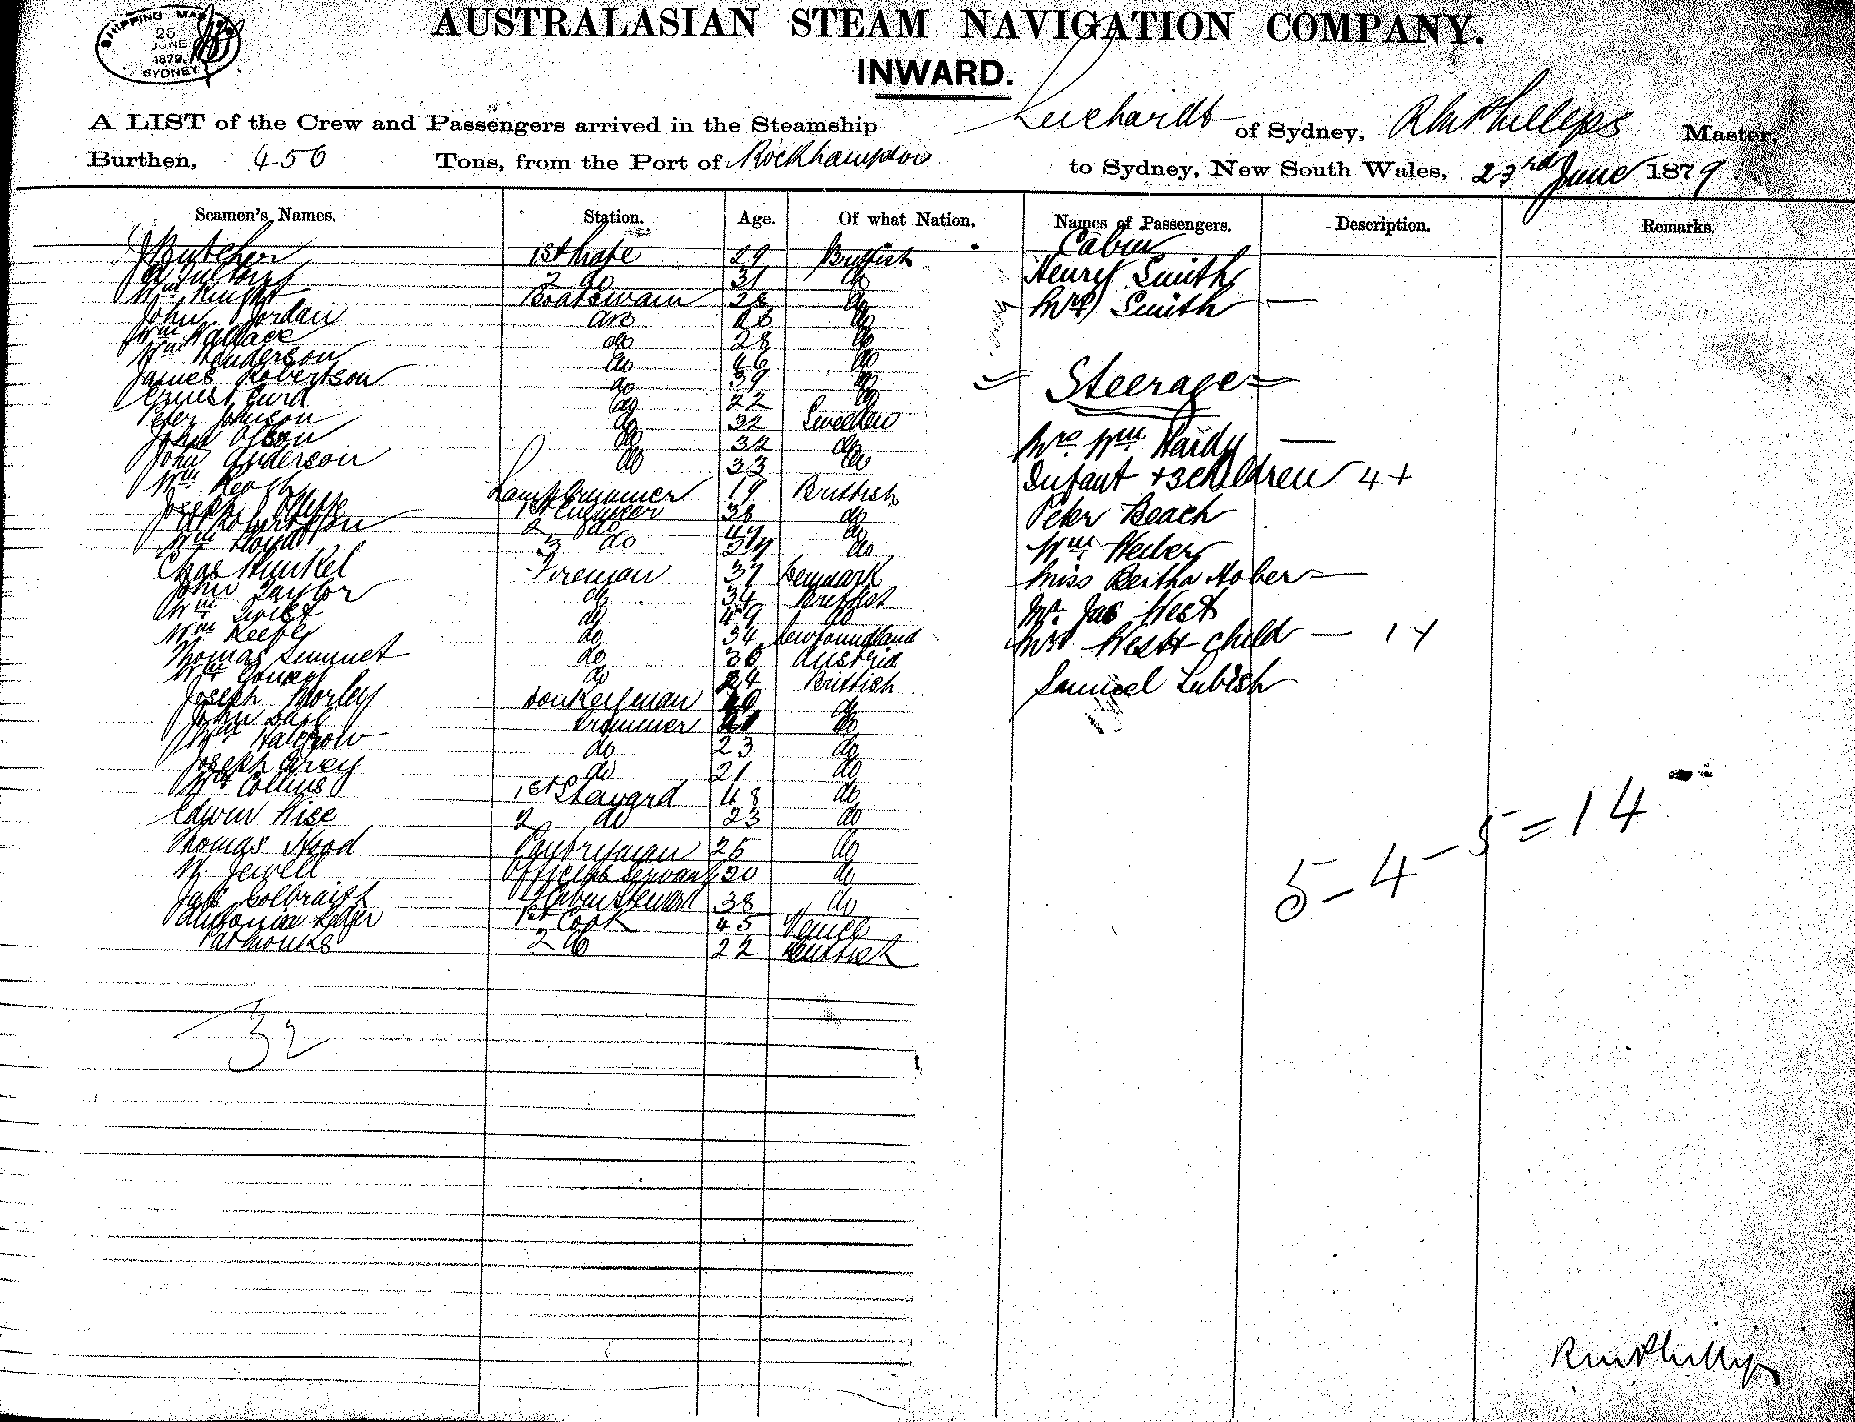 AUSTRALASIAN STEAM NAVIGATION COMPANY.
SHIPPING MASTER
25
JUNE
1879
SYDNEY
INWARD.
A LIST of the Crew and Passengers arrived in the Steamship Leichardt of Sydney, RM Phillips Master,
Burthen, 450 Tons, from the Port of Rockhampton to Sydney, New South Wales, 23rd June 1879
Seamen's Names. Station. Age. Of what Nation. Names of Passengers. Description. Remarks.
J Butcher 1st Mate 29 Brittish
2 do 31 do
Wm Knight Boatswain 28 do
John Jordan do do
Wm Wallace do 28 do
Wm Henderson do do
James Robertson do 39 do
Ernest Curd do 22 do
Peter Johnson do 32 Sweden
John Olson do 32 do
John Anderson do 33 do
Wm Keogh Lamptrimmer 19 Brittish
Joseph 1st Engineer 38 do
Robertson 2 do do
Wm Lloyd 3 do do
Chas Hunkel Fireman 37 Denmark
John Taylor do 34 Brittish
Wm do 49 do
Wm Keefe do 34 Newfoundland
Thomas do 30 Austria
Wm do 24 Brittish
Joseph Morley Donkeyman do
John Trimmer do
Wm do 23 do
Joseph Grey do 21 do
Wm Collins 1st Steward 48 do
Edwin Wise 2 do 23 do
Thomas Hood Pantryman 25 do
W Jewell Officers Servant 20 do
Jas Colbraist Cabin Steward 38 do
1st Cook 45 Venice
Pat Monks 2 do 22 Brittish
32
Cabin
Henry Smith
Mrs Smith —
Steerage
Mrs Wm Hardy —
Infant + 3 children 4 +
Peter Beach
Wm Weber
Miss Bertha —
Mr Jas West
Mrs West + child — 1 +
Samuel Lubish
5 - 4 - 5 = 14
RM Phillips